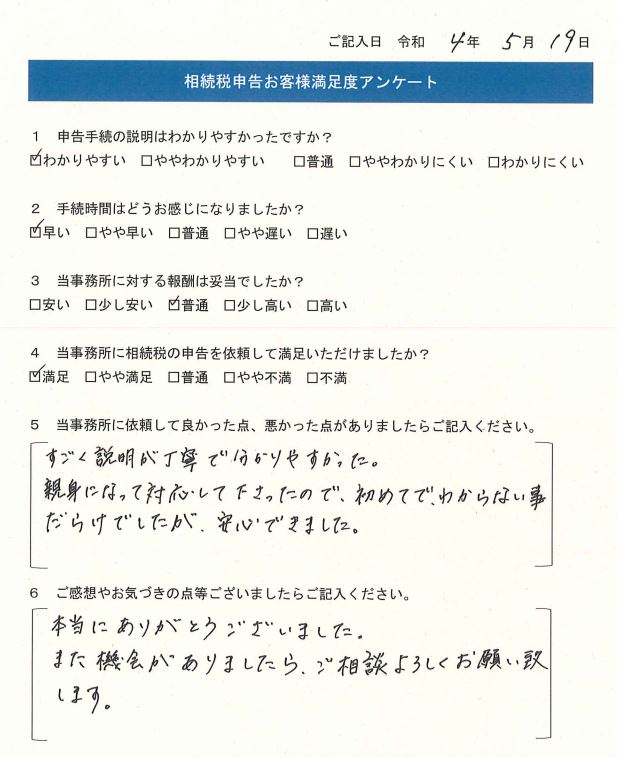 ご記入日 令和 4年 5月 19日
相続税申告お客様満足度アンケート
1 申告手続の説明はわかりやすかったですか？
☑わかりやすい □ややわかりやすい □普通 □ややわかりにくい □わかりにくい
2 手続時間はどうお感じになりましたか？
☑早い □やや早い □普通 □やや遅い □遅い
3 当事務所に対する報酬は妥当でしたか？
□安い □少し安い ☑普通 □少し高い □高い
4 当事務所に相続税の申告を依頼して満足いただけましたか？
☑満足 □やや満足 □普通 □やや不満 □不満
5 当事務所に依頼して良かった点、悪かった点がありましたらご記入ください。
すごく説明が丁寧で分かりやすかった。
親身になって対応して下さったので、初めてで、わからない事
だらけでしたが、安心できました。
6 ご感想やお気づきの点等ございましたらご記入ください。
本当にありがとうございました。
また機会がありましたら、ご相談よろしくお願い致
します。